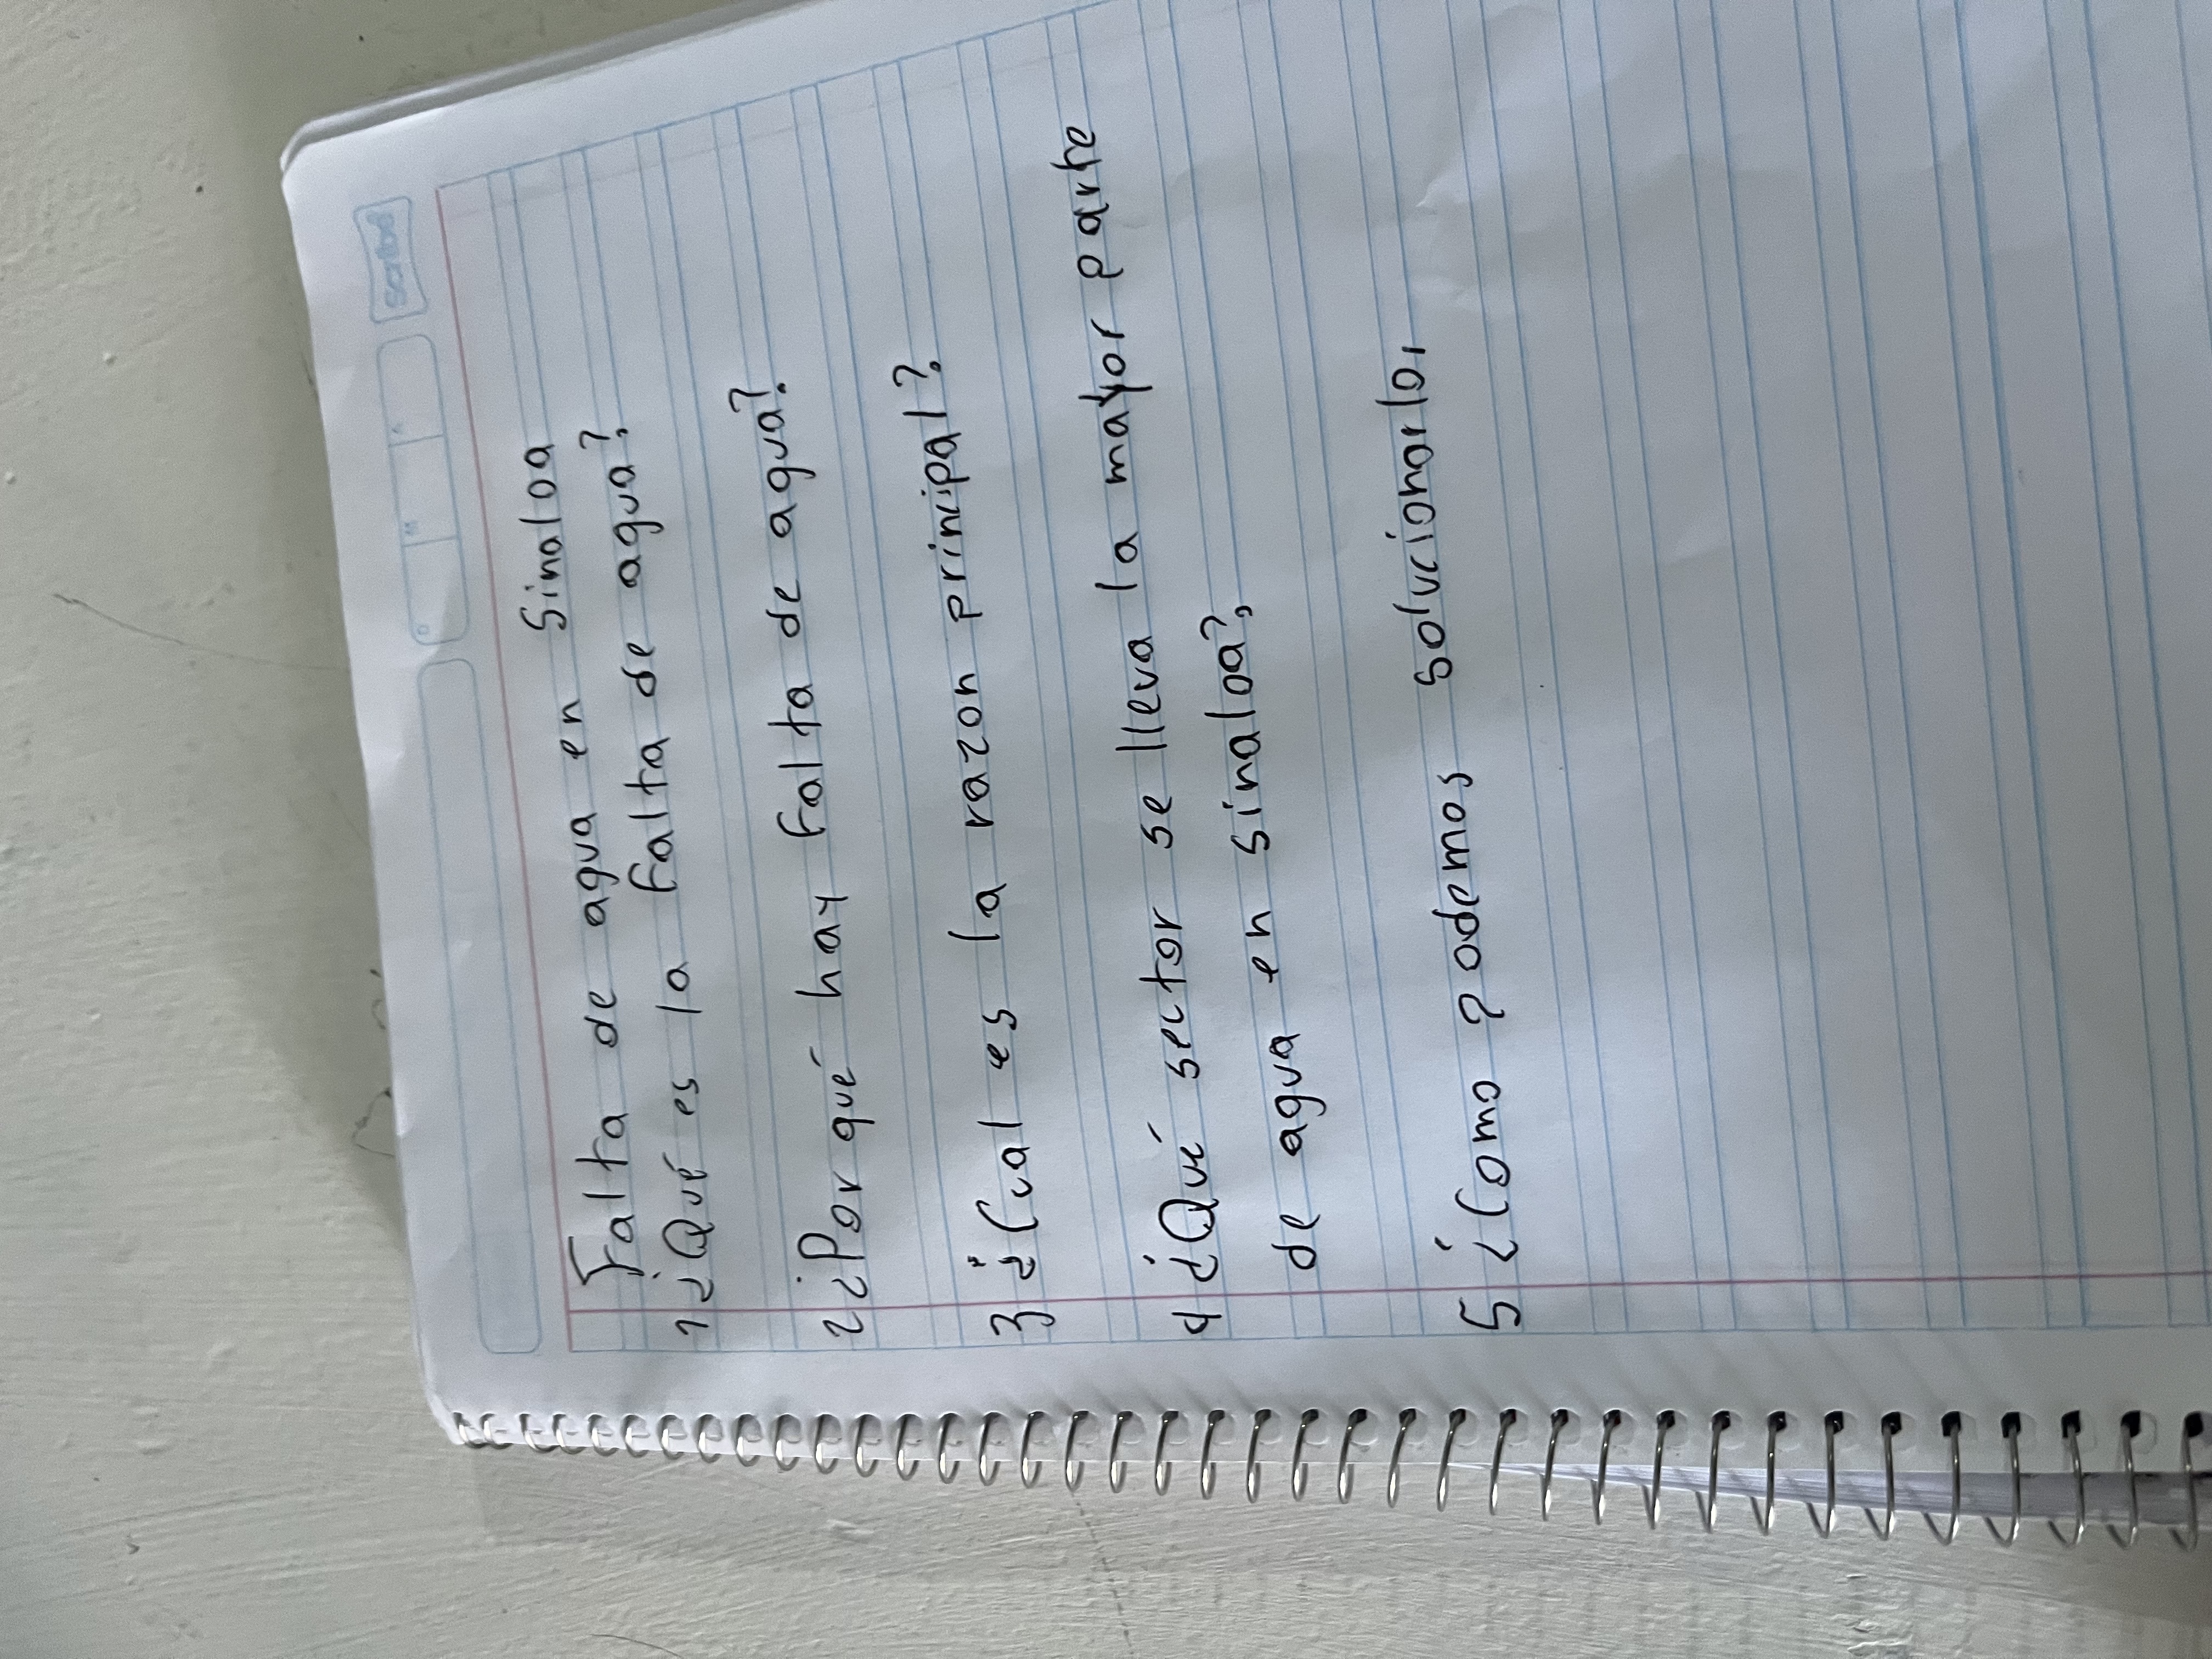 Scribe
Falta de agua en Sinaloa
1 ¿Qué es la falta de agua?
2 ¿Por qué hay falta de agua?
3 ¿Cual es la razon principal?
4 ¿Qué sector se lleva la mayor parte
de agua en sinaloa?
5 ¿Como podemos solucionarlo,